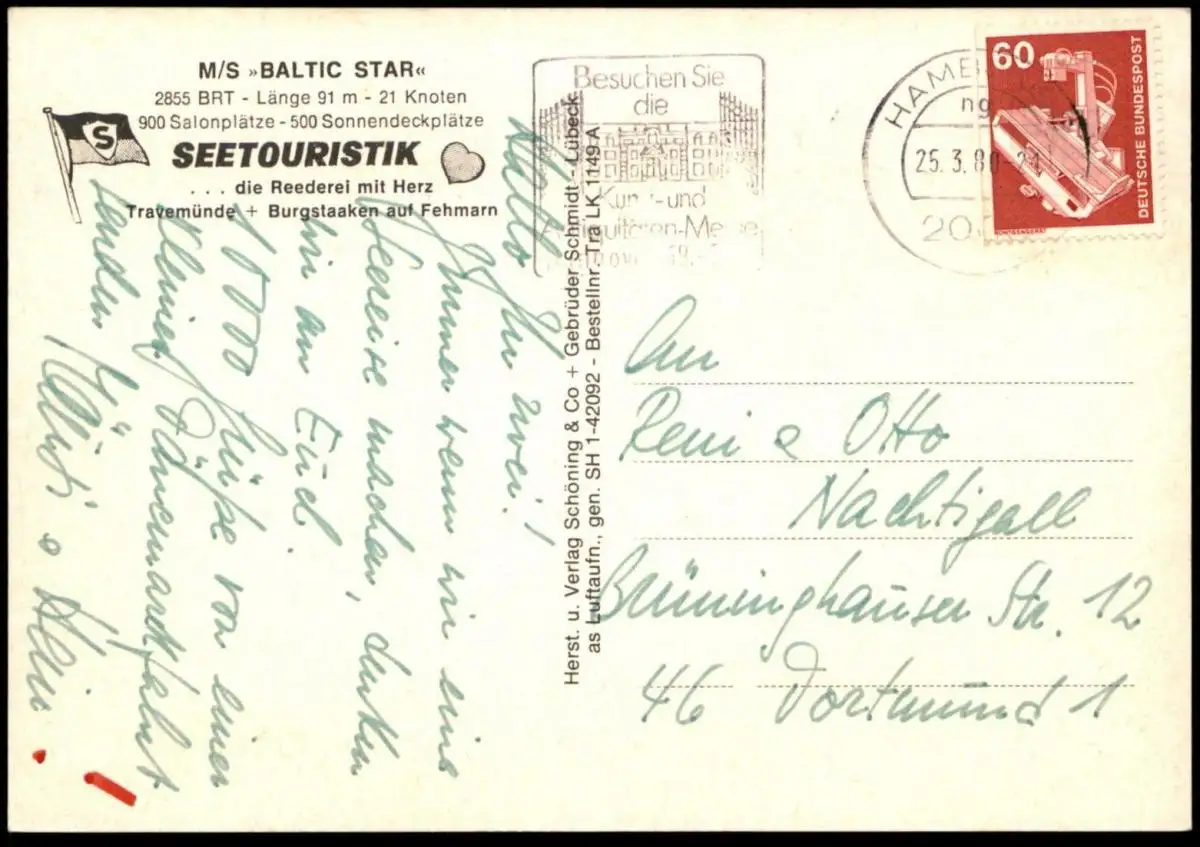 M/S »BALTIC STAR«
2855 BRT - Länge 91 m - 21 Knoten
900 Salonplätze - 500 Sonnendeckplätze
S
SEETOURISTIK
. . . die Reederei mit Herz
Travemünde + Burgstaaken auf Fehmarn
Hallo Ihr zwei!
Immer wenn wir eine
Seereise machen, denken
wir an Euch.
1000 Grüße von einer
kleinen Dänemarkfahrt
senden
Herst. u. Verlag Schöning & Co + Gebrüder Schmidt - Lübeck
as Luftaufn., gen. SH 1-42092 - Bestellnr. Tra LK 1149 A
Besuchen Sie
die
Kunst-und
Antiquitäten-Messe
HAMB
25.3.80
20
60
DEUTSCHE BUNDESPOST
RÖNTGENGERÄT
An
Reni & Otto
Nachtigall
Brünninghauser Str. 12
46 Dortmund 1